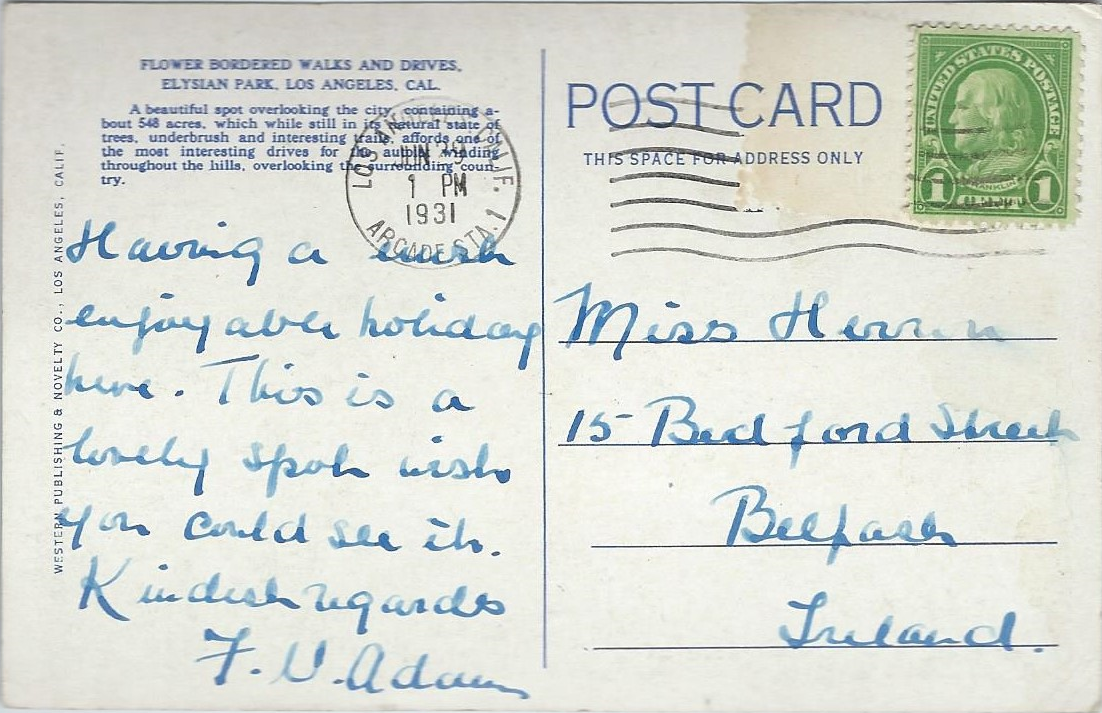 FLOWER BORDERED WALKS AND DRIVES,
ELYSIAN PARK, LOS ANGELES, CAL.
A beautiful spot overlooking the city, containing a-
bout 548 acres, which while still in its natural state of
trees, underbrush and interesting trails, affords one of
the most interesting drives for the autoist winding
throughout the hills, overlooking the surrounding coun-
try.
WESTERN PUBLISHING & NOVELTY CO., LOS ANGELES, CALIF.
LOS ANGELES, CALIF.
JUN 29
1 PM
1931
ARCADE STA. 1
Having a most
enjoyable holiday
here. This is a
lovely spot wish
you could see it.
Kindest regards
F. V. Adams
POST CARD
THIS SPACE FOR ADDRESS ONLY
UNITED STATES POSTAGE
FRANKLIN
1 1
Miss
15 Bedford Street
Belfast
Ireland.